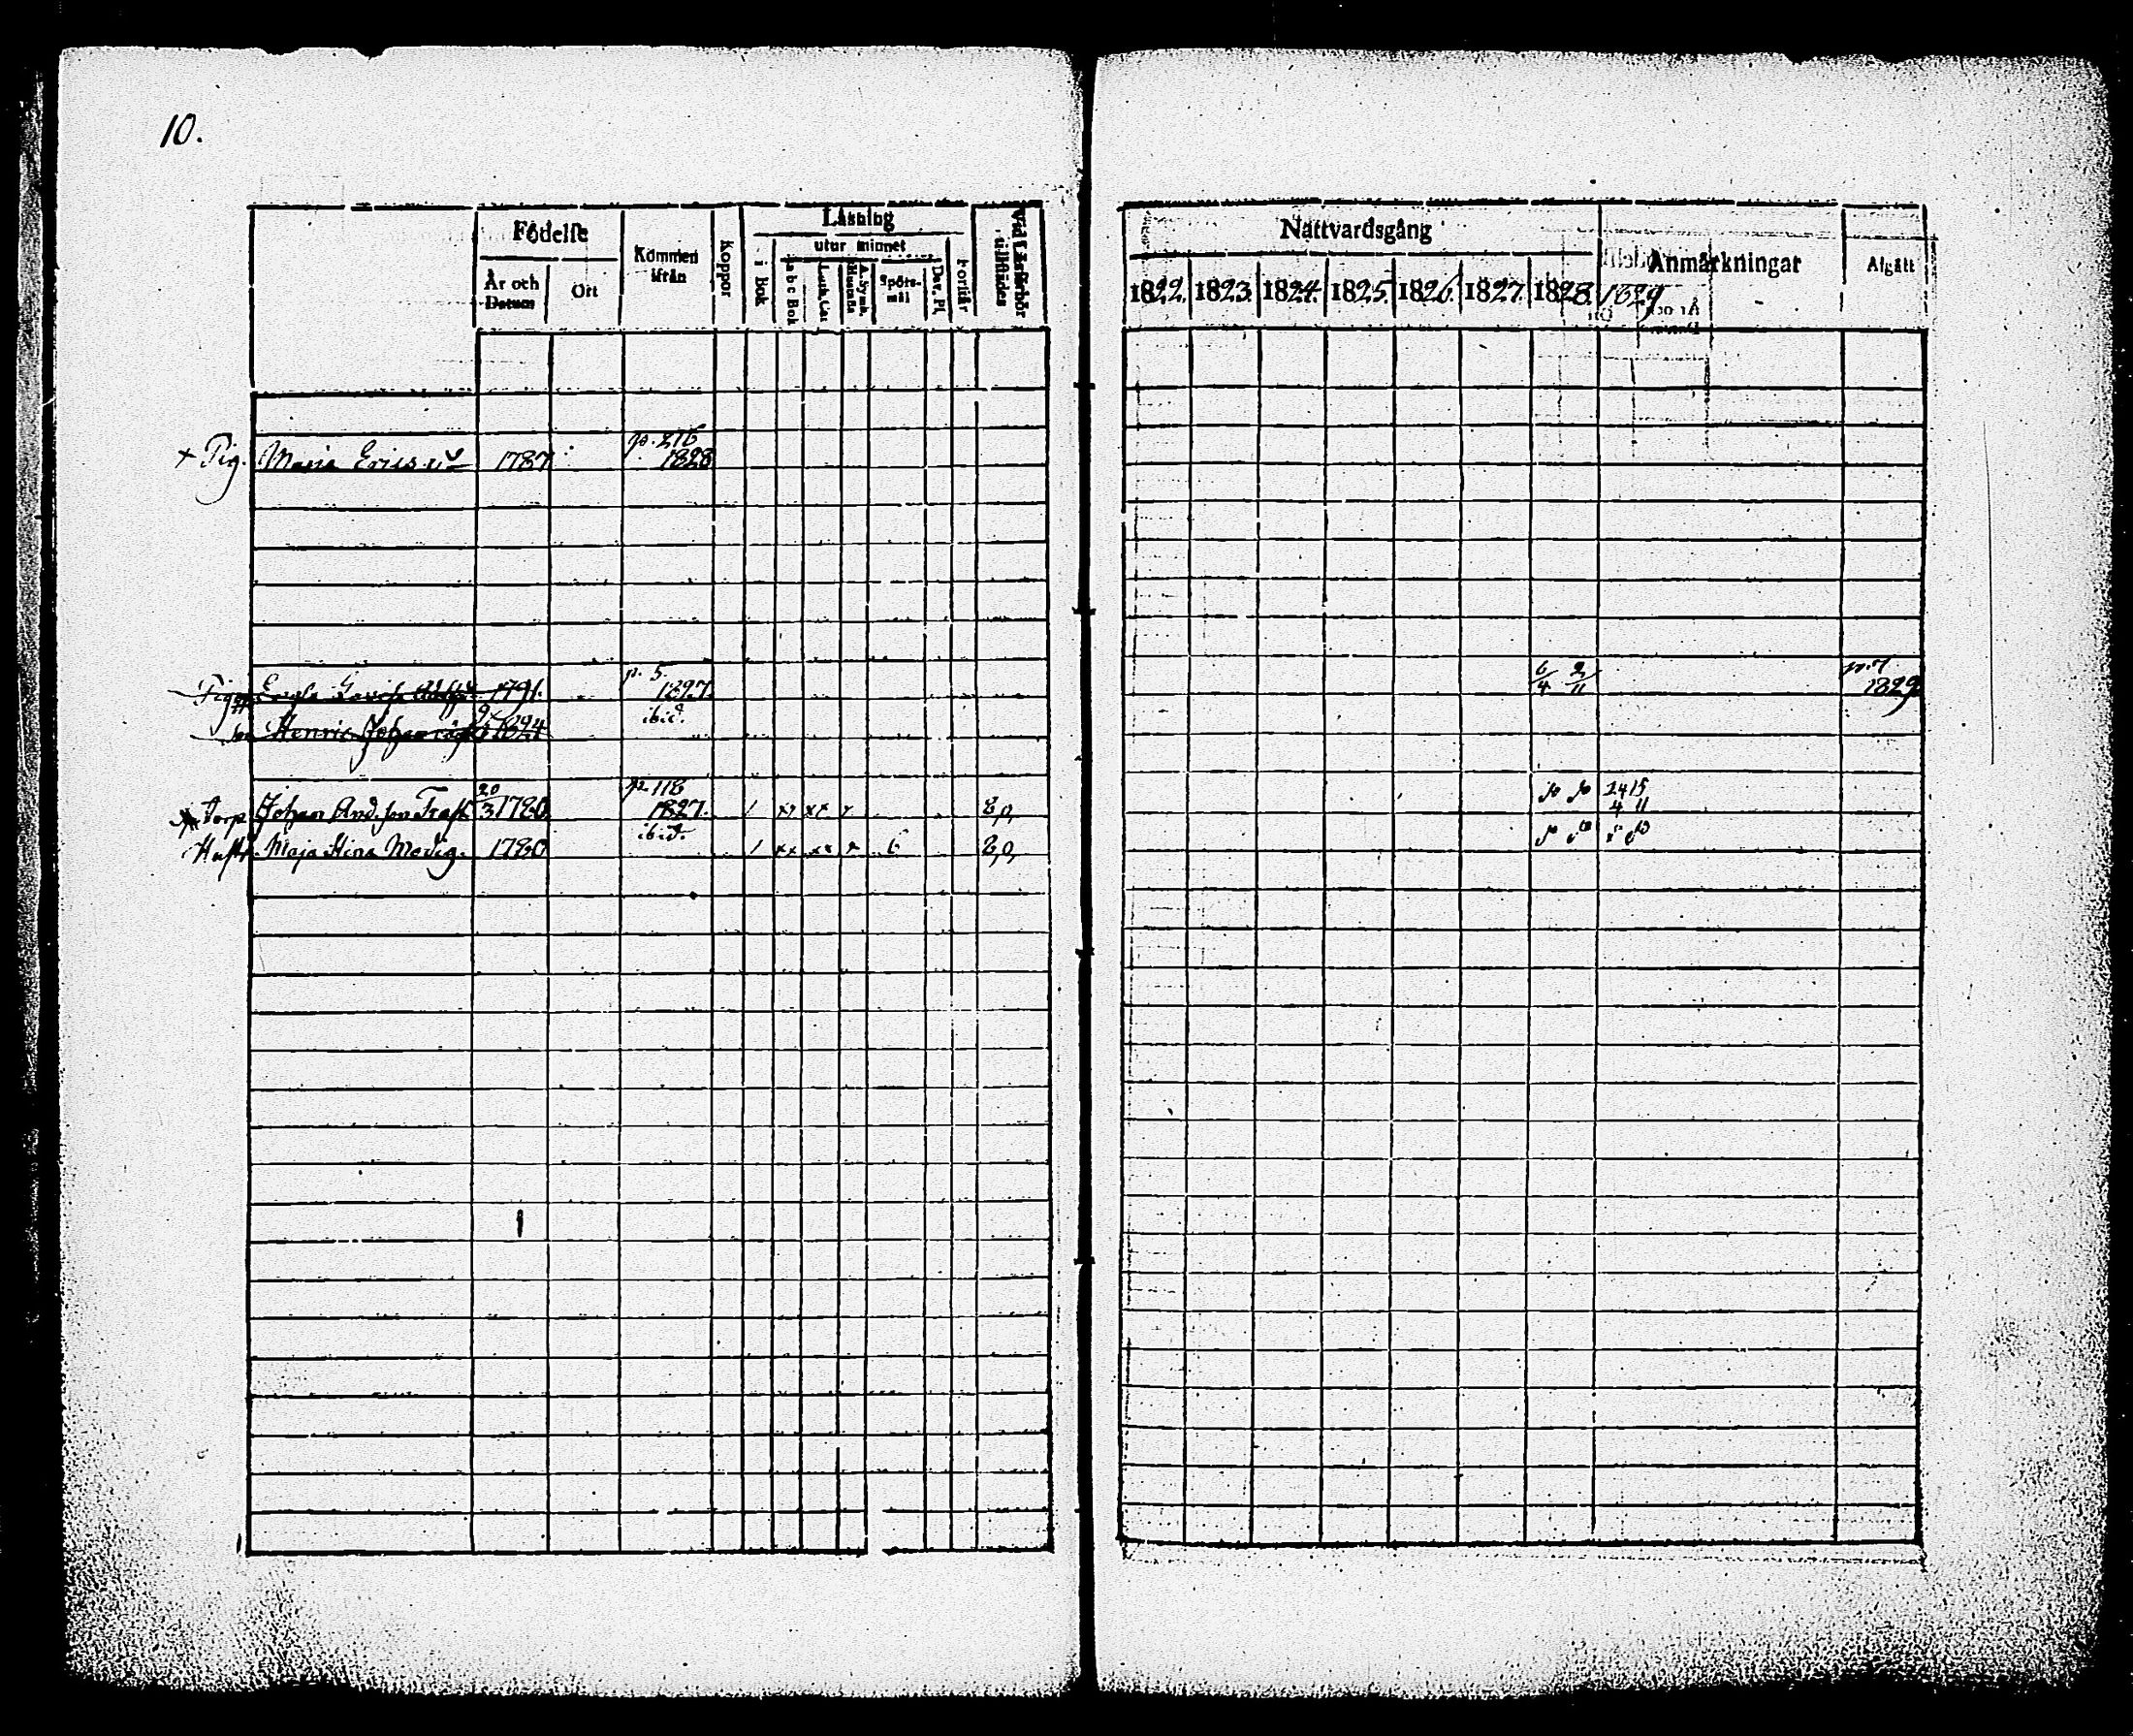 10.
Födelse
År och Datum
Ort
Kommen ifrån
Koppor
Läsning
i Bok
utur minnet
a b c Bok
Luth. Cat
A. Symb. Hustafla
Spörsmål
Dav. Ps.
Förstår
Vid Läsförhör tillstädes
Nattvardsgång
1822. 1823. 1824. 1825. 1826. 1827. 1828. 1829
Anmärkningar
Afgått
p. 216
+ Pig. Maria Ericsd 1787 1828
p. 5. 6/4 2/11 p. 7
Pig. 1791. 1827. 1829
Henric Johan 1824 ibid.
20 p. 118 24 15
Torp. Johan And.son Trast 3 1780 1827. 1 8,0, 4 11
ibid.
Hustr. Maja Stina Modig. 1780 1 6 8,0,